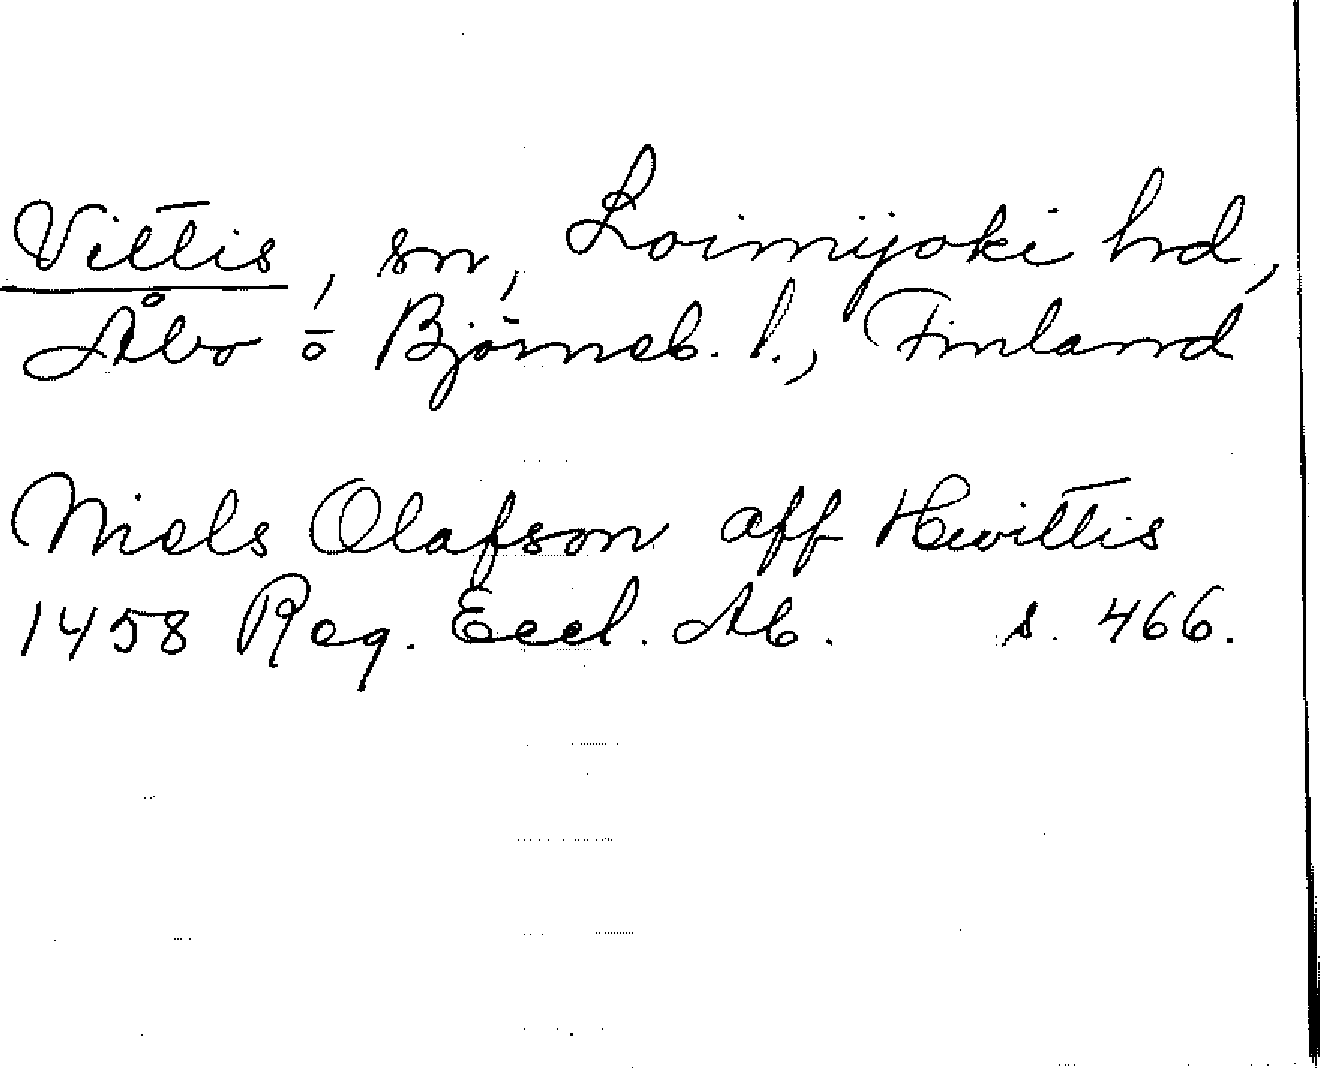 Vittis, sn, Loimijoki hrd,
Åbo ō Björneb. l., Finland
Niels Olafson aff Hwittis
1458 Reg. Eccl. Ab. s. 466.